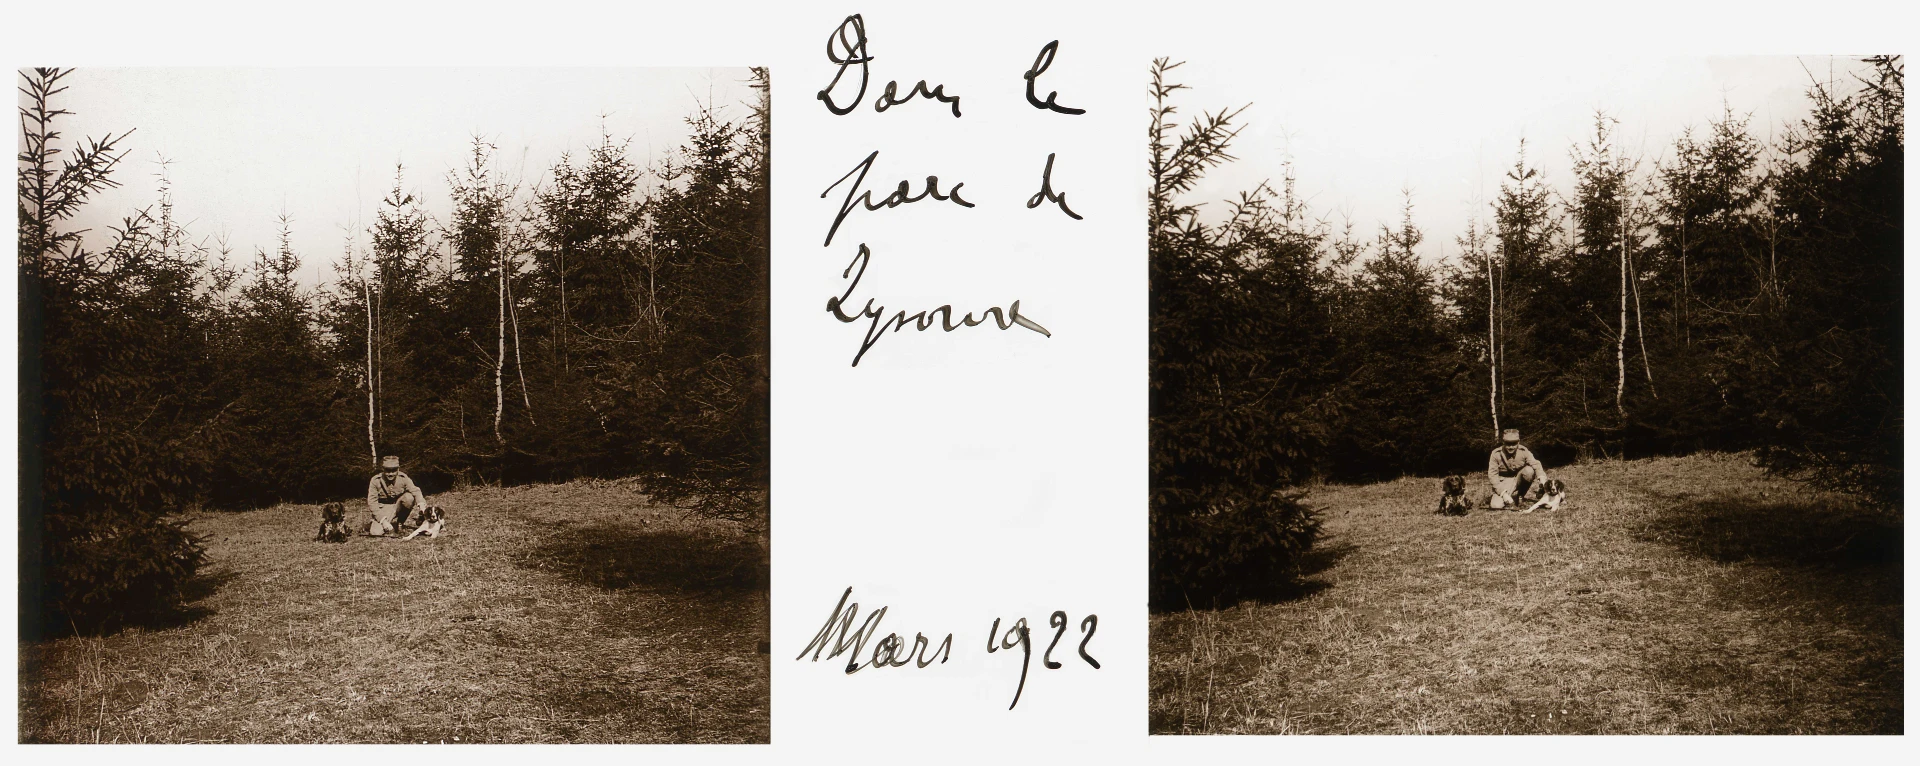 Dans le
parc de
Mars 1922